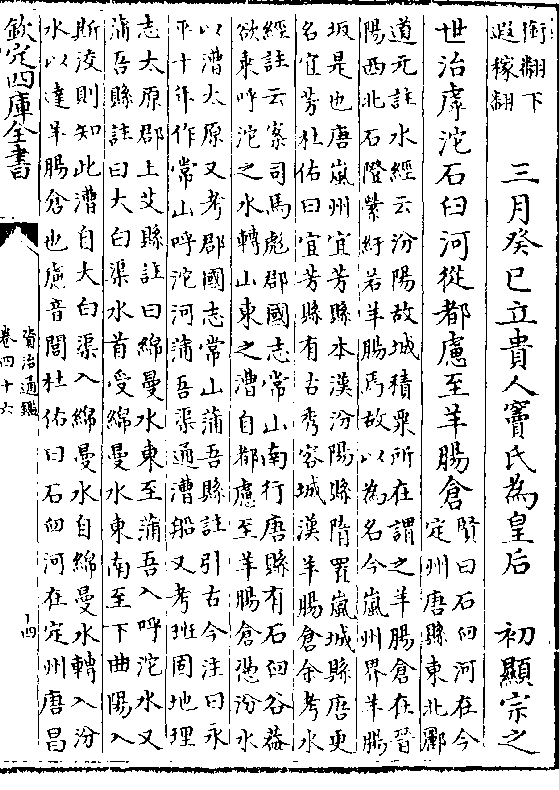 銜翻下
遐稼翻
三月癸巳立貴人竇氏為皇后　初顯宗之
世治虖沱石臼河從都慮至羊腸倉
賢曰石臼河在今
定州唐縣東北酈
道元註水經云汾陽故城積粟所在謂之羊腸倉在晉
陽西北石隥縈紆若羊腸焉故以為名今嵐州界羊腸
坂是也唐嵐州宜芳縣本漢汾陽縣隋置嵐城縣唐更
名宜芳杜佑曰宜芳縣有古秀容城漢羊腸倉余考水
經註云案司馬彪郡國志常山南行唐縣有石臼谷蓋
欲乗呼沱之水轉山東之漕自都慮至羊腸倉憑汾水
以漕太原又考郡國志常山蒲吾縣註引古今注曰永
平十年作常山呼沱河蒲吾渠通漕船又考班固地理
志太原郡上艾縣註曰綿曼水東至蒲吾入呼沱水又
蒲吾縣註曰大白渠水首受綿曼水東南至下曲陽入
斯洨則知此漕自大白渠入綿曼水自綿曼水轉入汾
水以達羊腸倉也慮音閭杜佑曰石臼河在定州唐昌
欽定四庫全書
資治通鑑
卷四十六
十四